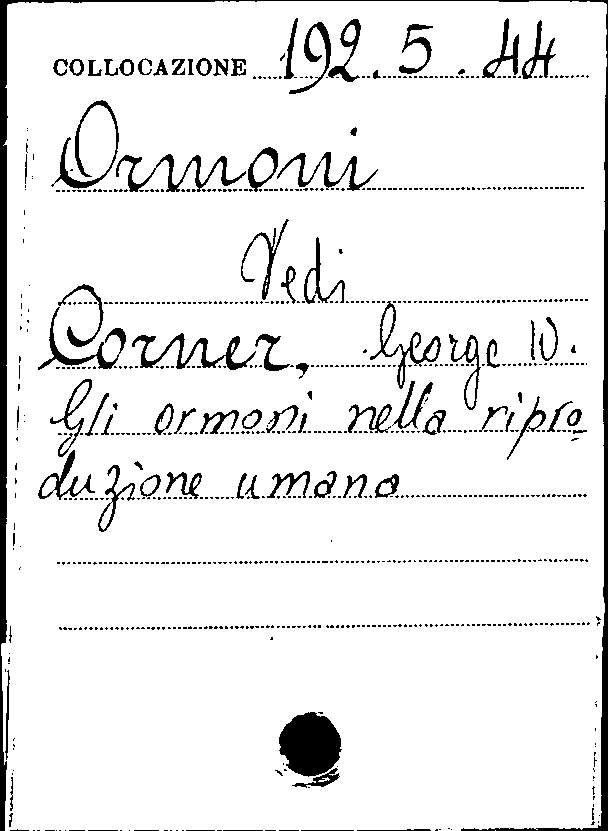 COLLOCAZIONE 192.5.44
Ormoni
Vedi
Corner, George W.
Gli ormoni nella ripro
duzione umana